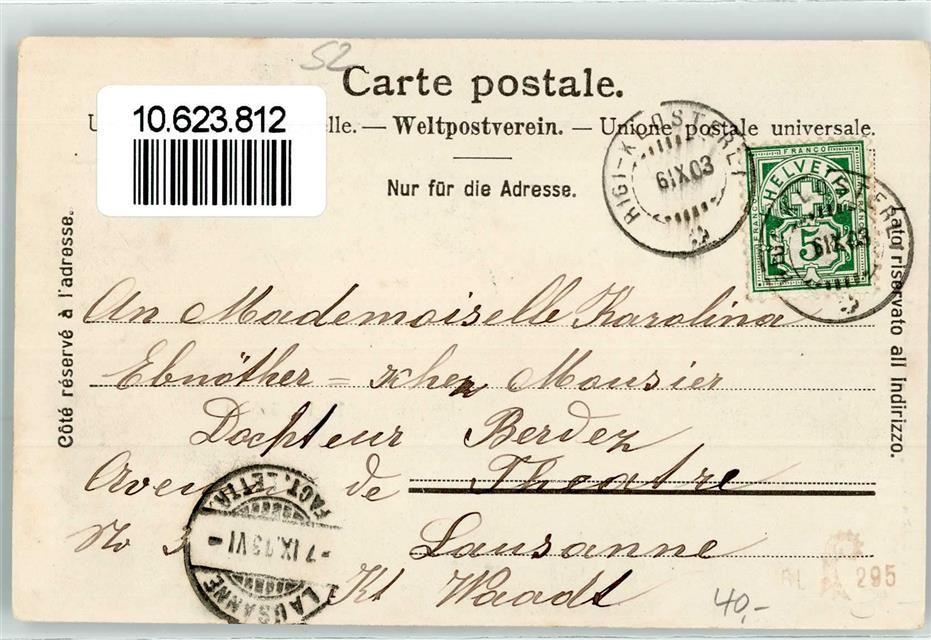 52
Carte postale.
10.623.812
lle. — Weltpostverein. — Unione postale universale.
Nur für die Adresse.
RIGI-KLÖSTERLI
6IX03
FRANCO
HELVETIA
5
6IX03
Côté réservé à l'adresse.
Lato riservato all indirizzo.
An Mademoiselle Karolina
Ebnöther = schez Monsier
Dockteur Berdez
Avenue de Theatre
No 3 Lausanne
Kt Waadt
LAUSANNE
FACT. LETTR.
7 IX.03 VI
40,-
295